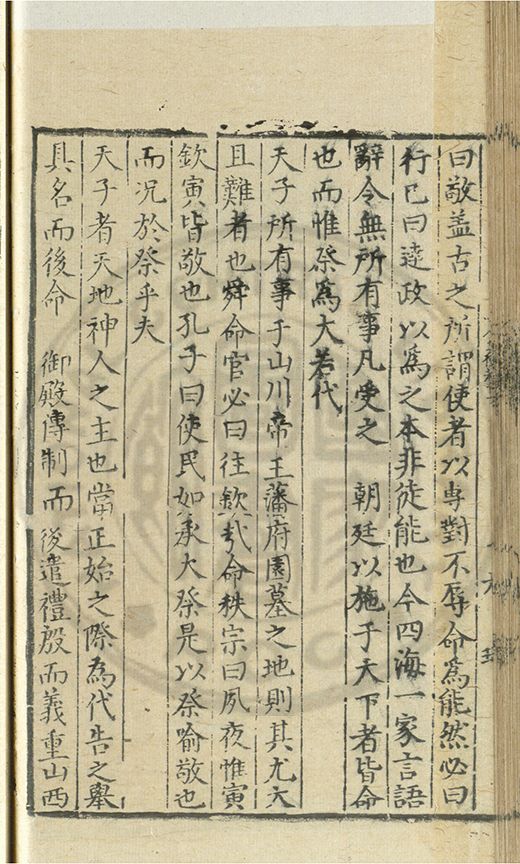 曰敬盖古之所謂使者以專對不辱命爲能然必曰
行己曰達政以爲之本非徒能也今四海一家言語
辭令無所有事凡受之　朝廷以施于天下者皆命
也而惟祭爲大若代
天子所有事于山川帝王藩府園墓之地則其尤大
且難者也舜命官必曰往欽哉命秩宗曰夙夜惟寅
欽寅皆敬也孔子曰使民如承大祭是以祭喻敬也
而况於祭乎夫
天子者天地神人之主也當正始之際為代告之舉
具名而後命　御殿傳制而後遣禮殷而義重山西